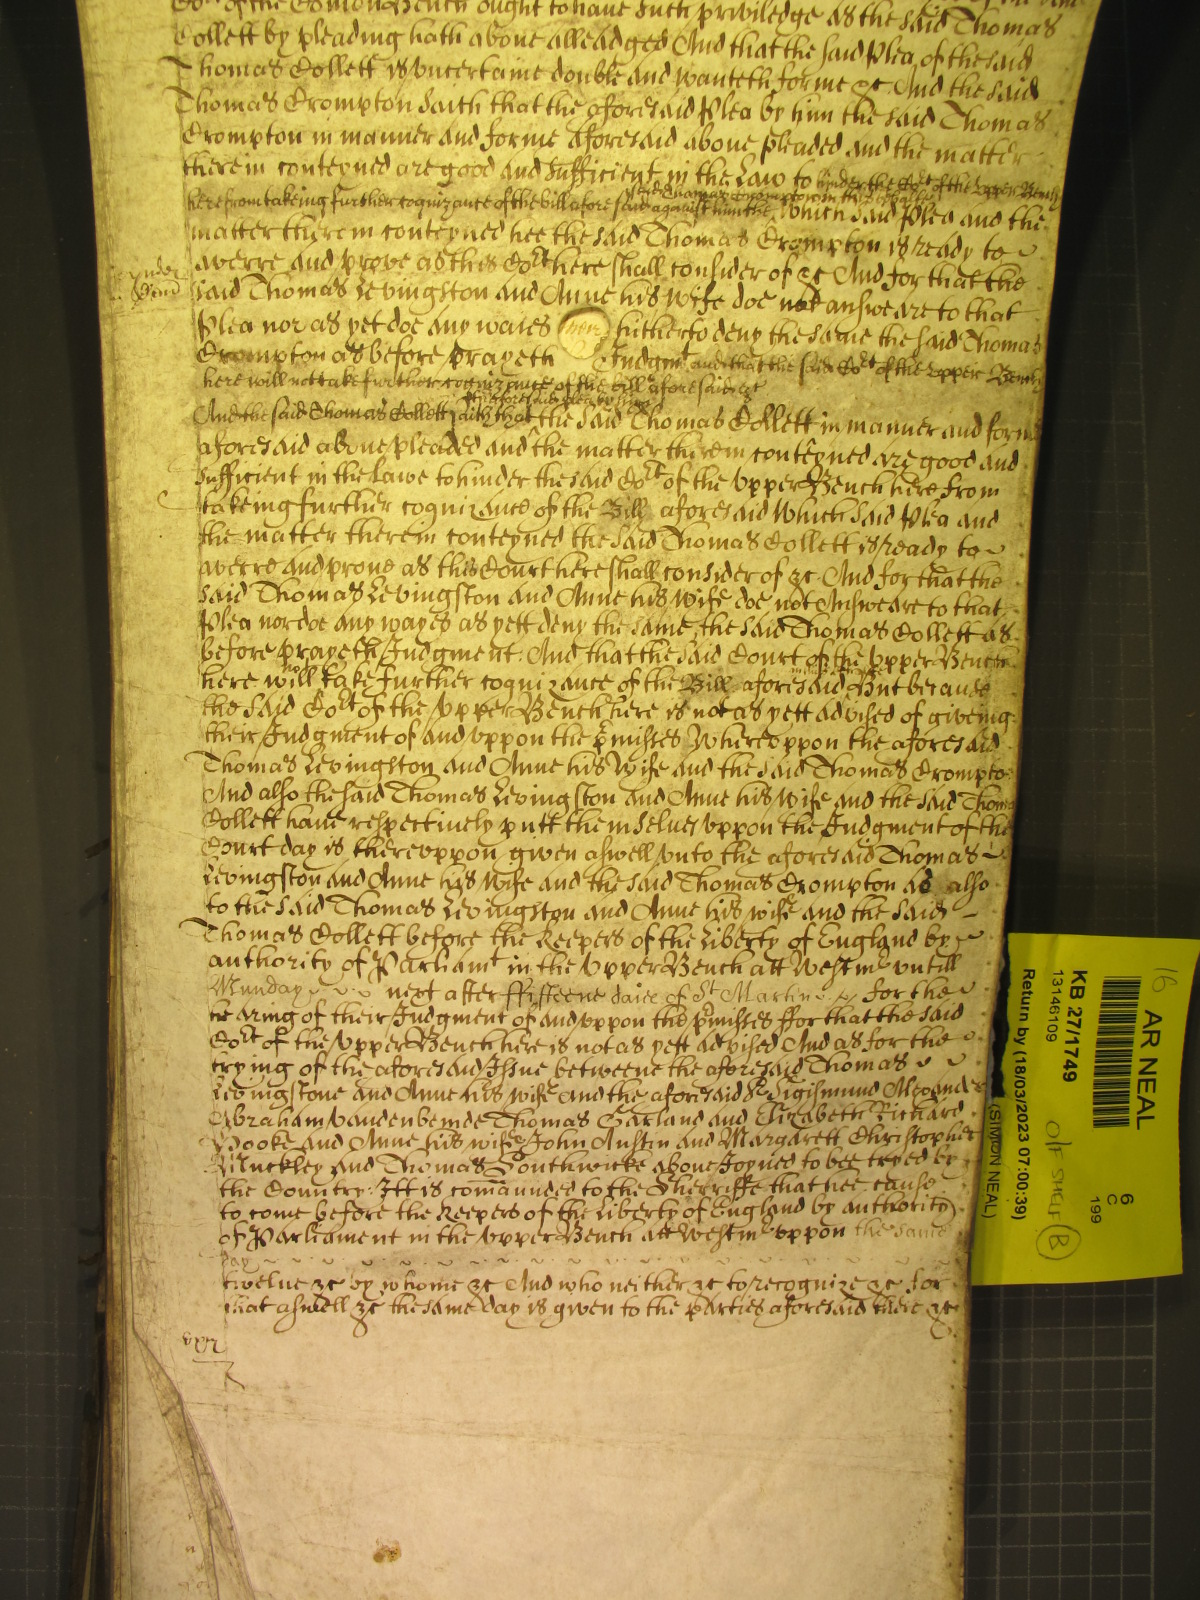 Cort of the Comon Bench ought to have such priviledge as the said Thomas
Collett by pleading hath above alleadged And that the said Plea of the said
Thomas Collett is uncertaine double and wanteth forme &c And the said
Thomas Crompton saith that the aforesaid Plea by him the said Thomas
Crompton in manner and forme aforesaid above pleaded and the matter
therein conteyned are good and sufficient in the Law to hinder the Cort of the Upper Bench
here from takeing further cognizance of the bill aforesaid against him the said Thomas Crompton Which said Plea and the
matter therein conteyned hee the said Thomas Crompton is ready to
averre and prove as this Cort here shall consider of &c And for that the
said Thomas Levingston and Anne his wife doe not answeare to that
Plea nor as yet doe any waies hitherto deny the same the said Thomas
Crompton as before prayeth Judgmt and that the said Cort of the Upper Bench
here will not take further cognizance of the bill aforesaid &c
And the said Thomas Collett saith that the aforesaid plea by him the said Thomas Collett in manner and forme
aforesaid above pleaded and the matter therein conteyned are good and
sufficient in the Lawe to hinder the said Cort of the Upper Bench here from
takeing further cognizance of the Bill aforesaid Which said Plea and
the matter therein conteyned the said Thomas Collett is ready to
averre and prove as this Court here shall consider of &c And for that the
said Thomas Levingston and Anne his wife doe not Answeare to that
Plea nor doe any wayes as yett deny the same the said Thomas Collett as
before prayeth Judgment And that the said Court of the Upper Bench
here will not take further cognizance of the Bill aforesaid But because
the said Cort of the Upper Bench here is not as yett advised of giveing
their Judgment of and uppon the pmisses Whereuppon the aforesaid
Thomas Levingston and Anne his Wife and the said Thomas Crompton
And also the said Thomas Levingston and Anne his wife and the said Thomas
Collett have respectively putt themselves uppon the Judgment of the
Court day is thereuppon given aswell unto the aforesaid Thomas
Levingston and Anne his Wife and the said Thomas Crompton as also
to the said Thomas Levingston and Anne his wife and the said
Thomas Collett before the Keepers of the Liberty of England by
authority of Parliamt in the Upper Bench att Westmr untill
Munday next after ffifteene daies of St Martin for the
heareing of their Judgment of and uppon the pmisses ffor that the said
Cort of the Upper Bench here is not as yett advised And as for the
trying of the aforesaid Issue betweene the aforesaid Thomas
Levingstone and Anne his wife and the aforesaid Sr Sigismund Alexander
Abraham Vandenbemde Thomas Garland and Elizabeth Richard
Mooke and Anne his wife John Austin and Margarett Christopher
Muckley and Thomas Southwicke above Joyned to bee tryed by
the Country Itt is comaunded to the Sherriffe that hee cause
to come before the Keepers of the Liberty of England by authority
of Parliament in the Upper Bench att Westmr uppon the same
day
twelve &c by whome &c And who neither &c to recognize &c for
that aswell &c the same day is given to the parties aforesaid there &c
ver
16
AR NEAL
6
C
199
KB 27/1749
13146109
O/F SHELF (B)
Return by (18/03/2023 07:00:39)
(SIMON NEAL)